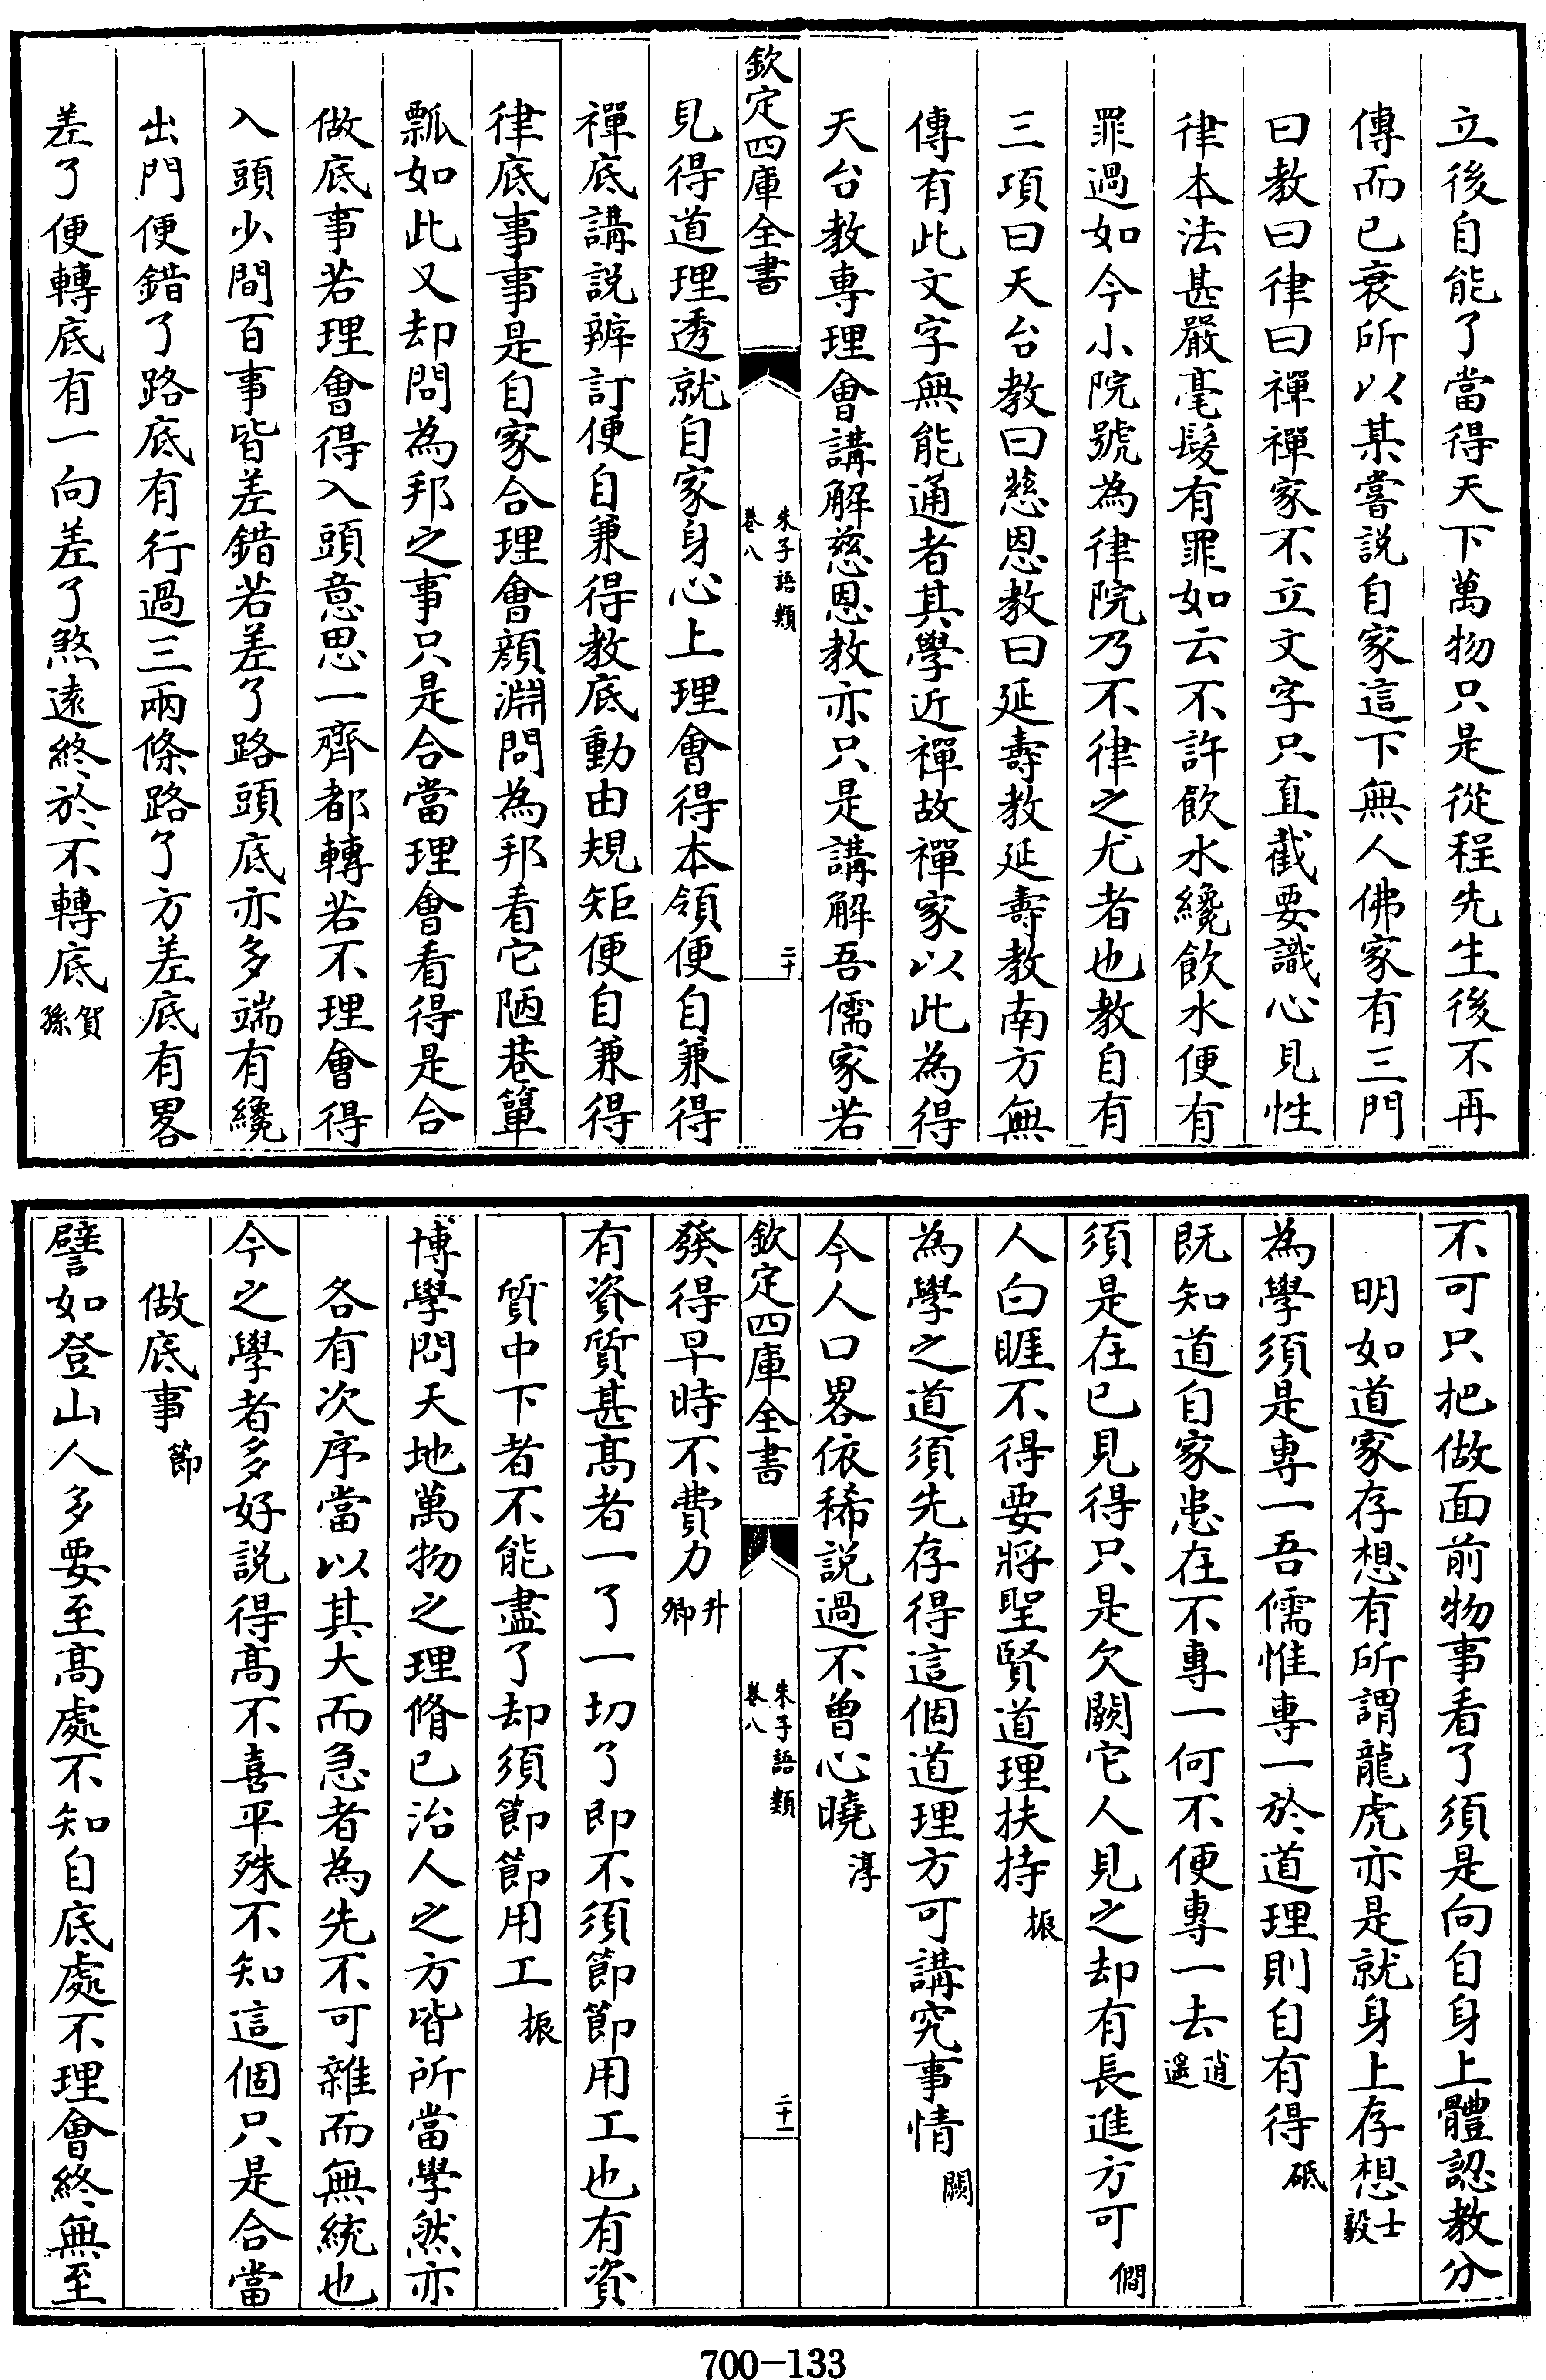 立後自能了當得天下萬物只是從程先生後不再
傳而已衰所以某嘗說自家這下無人佛家有三門
曰教曰律曰禪禪家不立文字只直截要識心見性
律本法甚嚴毫髮有罪如云不許飲水纔飲水便有
罪過如今小院號為律院乃不律之尤者也教自有
三項曰天台教曰慈恩教曰延壽教延壽教南方無
傳有此文字無能通者其學近禪故禪家以此為得
天台教專理會講解慈恩教亦只是講解吾儒家若
欽定四庫全書
朱子語類
卷八
二十
見得道理透就自家身心上理會得本領便自兼得
禪底講說辨訂便自兼得教底動由規矩便自兼得
律底事事是自家合理會顏淵問為邦看它陋巷簞
瓢如此又却問為邦之事只是合當理會看得是合
做底事若理會得入頭意思一齊都轉若不理會得
入頭少間百事皆差錯若差了路頭底亦多端有纔
出門便錯了路底有行過三兩條路了方差底有畧
差了便轉底有一向差了煞遠終於不轉底賀孫
不可只把做面前物事看了須是向自身上體認教分
明如道家存想有所謂龍虎亦是就身上存想士毅
為學須是專一吾儒惟專一於道理則自有得砥
既知道自家患在不專一何不便專一去逍遙
須是在已見得只是欠闕它人見之却有長進方可僩
人白睚不得要將聖賢道理扶持振
為學之道須先存得這個道理方可講究事情闕
今人口畧依稀說過不曾心曉淳
欽定四庫全書
朱子語類
卷八
二十一
發得早時不費力升卿
有資質甚高者一了一切了即不須節節用工也有資
質中下者不能盡了却須節節用工振
博學問天地萬物之理脩已治人之方皆所當學然亦
各有次序當以其大而急者為先不可雜而無統也
今之學者多好說得高不喜平殊不知這個只是合當
做底事節
譬如登山人多要至高處不知自底處不理會終無至
700-133